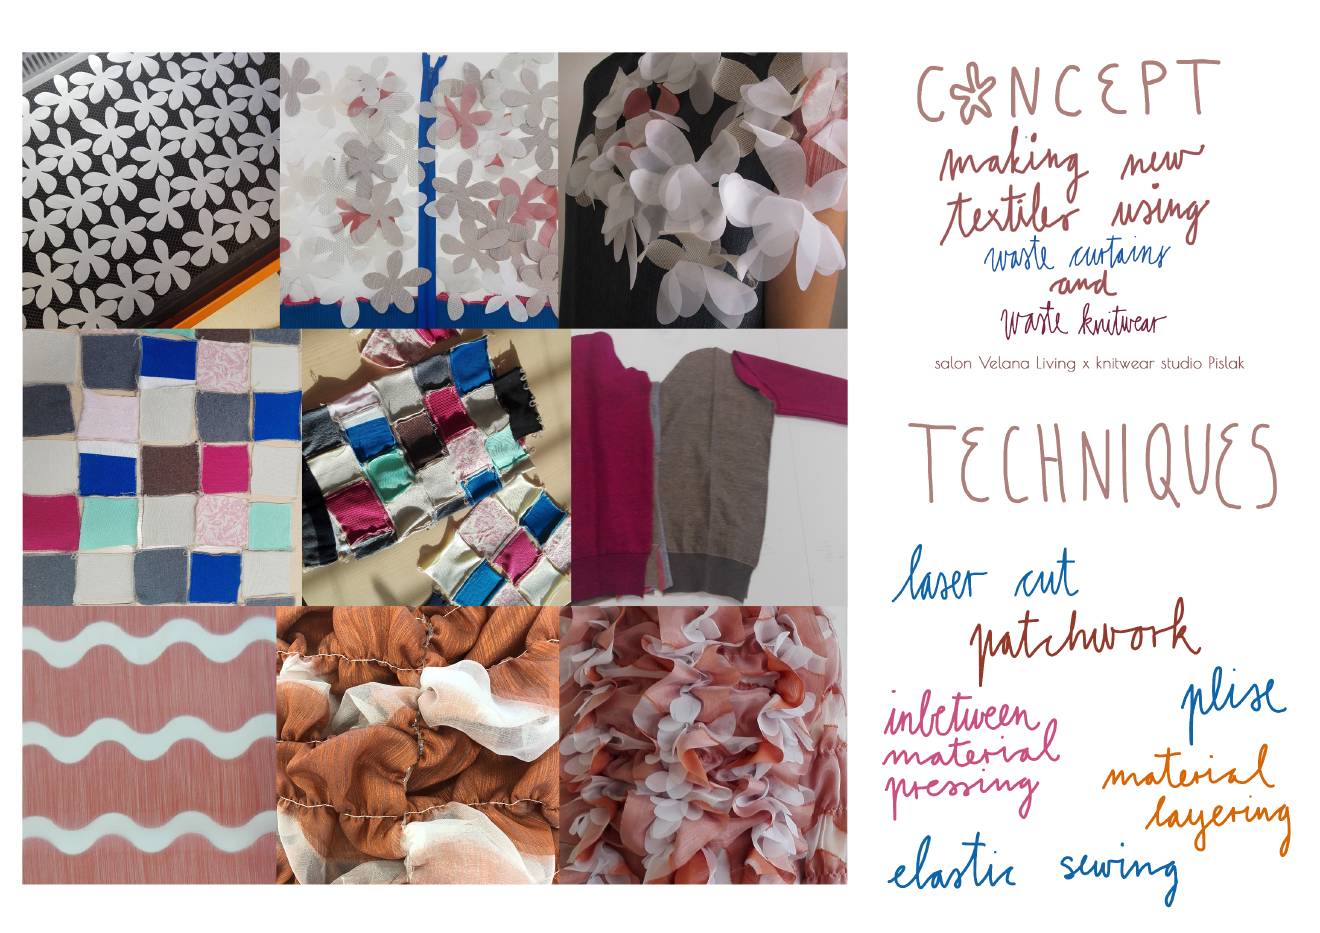 CONCEPT
making new
textiles using
waste curtains
and
waste knitwear
salon Velana Living x knitwear studio Pislak
TECHNIQUES
laser cut
patchwork
plise
inbetween
material
pressing
material
layering
elastic sewing